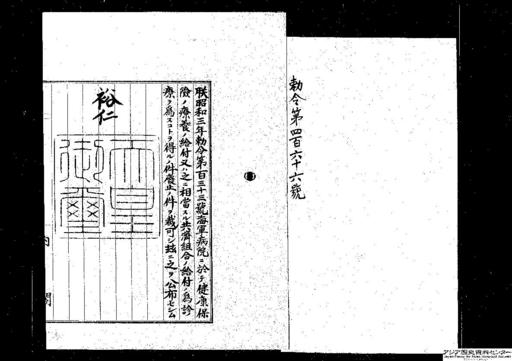 勅令第四百六十六號
朕昭和三年勅令第百三十三號海軍病院ニ於テ健康保
險ノ療養ノ給付又ハ之ニ相當スル共濟組合ノ給付ノ爲診
療ヲ爲スコトヲ得ルノ件廢止ノ件ヲ裁可シ玆ニ之ヲ公布セシム
裕仁
天皇御璽
内閣
アジア歴史資料センター